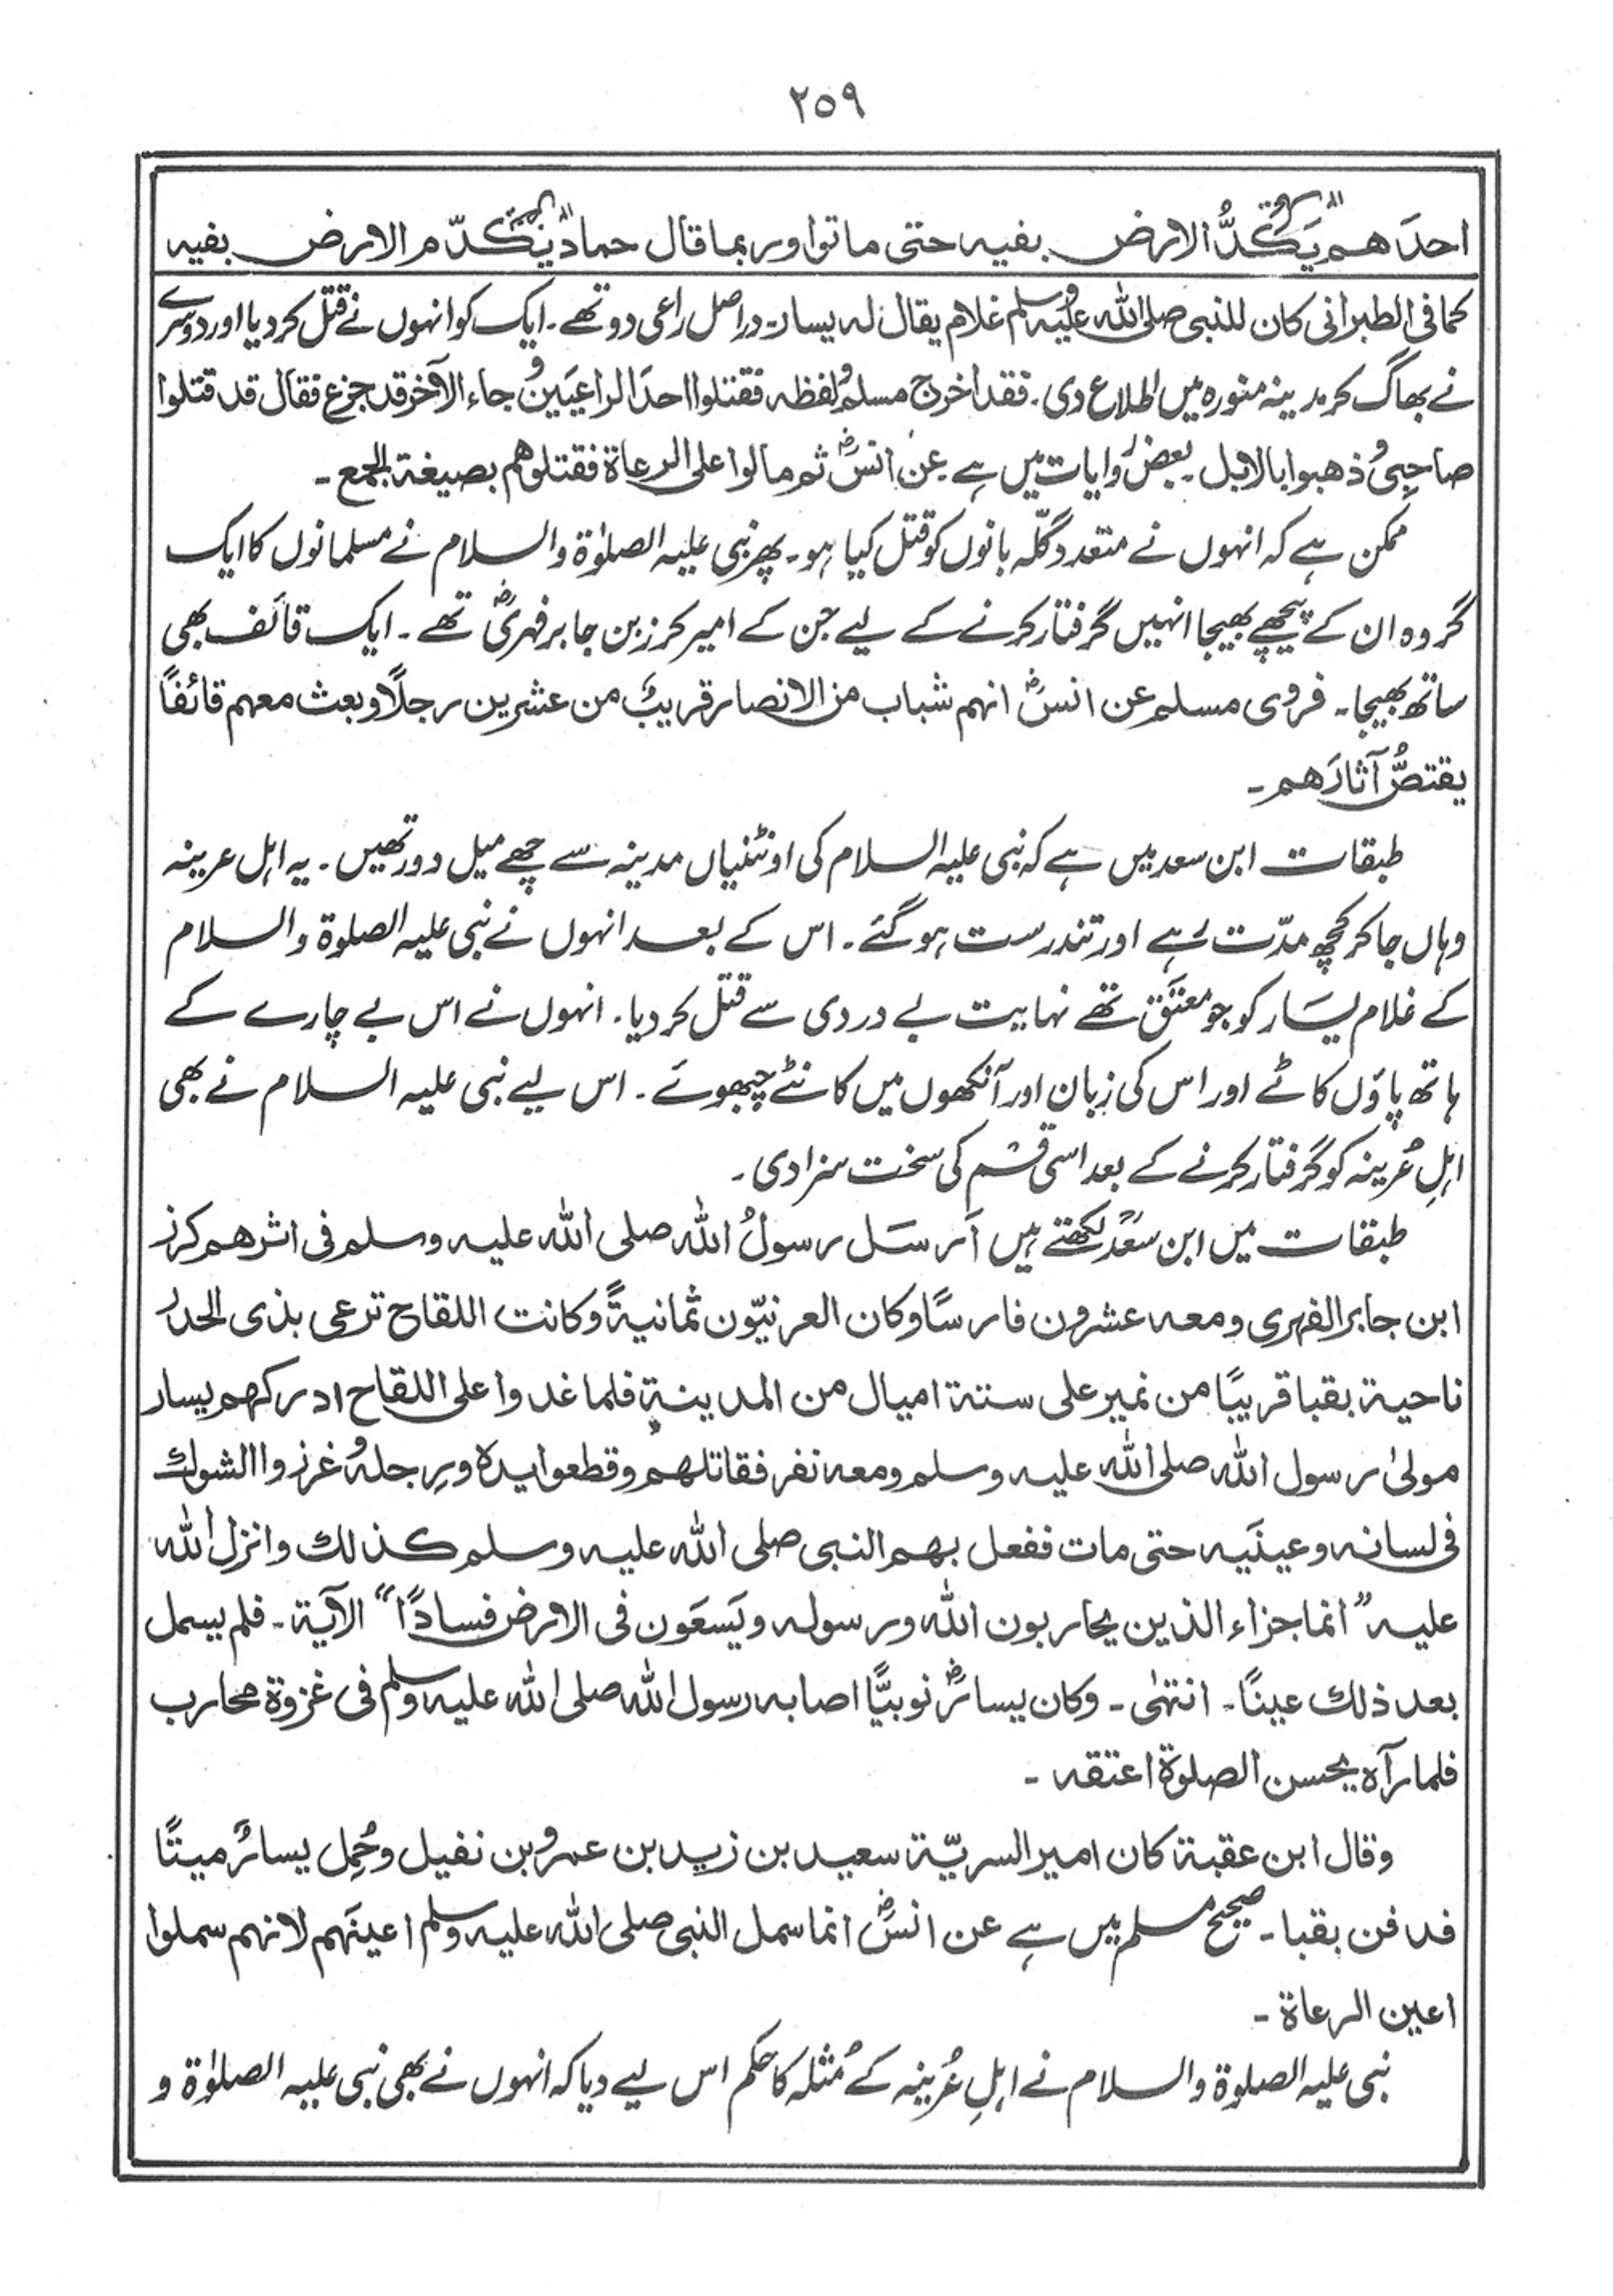 ٢٥٩
احدَهم يَكُدُّ الارض بفيه حتى ماتوا وربما قال حماد يَكْدُم الارض بفيه
كما فى الطبرانى كان للنبى صلى الله عليه وسلم غلام يقال له يسار۔ دراصل راعی دو تھے۔ ایک کو انہوں نے قتل کر دیا اور دوسرے
نے بھاگ کر مدینہ منورہ میں اطلاع دی۔ فقد اخرج مسلم ولفظه فقتلوا احدَ الراعيَين و جاء الآخر قد جزع فقال قد قتلوا
صاحبى و ذهبوا بالابل۔ بعض روایات میں ہے۔ عن انسؓ ثم مالوا على الرعاة فقتلوهم بصيغة الجمع۔
ممکن ہے کہ انہوں نے متعدد گلّہ بانوں کو قتل کیا ہو۔ پھر نبی علیہ الصلوٰۃ والسلام نے مسلمانوں کا ایک
گروہ ان کے پیچھے بھیجا انہیں گرفتار کرنے کے لیے جن کے امیر کرز بن جابر فہریؓ تھے۔ ایک قائف بھی
ساتھ بھیجا۔ فروى مسلم عن انسؓ انهم شباب من الانصار قريبٌ من عشرين رجلًا وبعث معهم قائفًا
يقتصُّ آثارَهم۔
طبقات ابن سعد میں ہے کہ نبی علیہ السلام کی اونٹنیاں مدینہ سے چھے میل دور تھیں۔ یہ اہل عرینہ
وہاں جا کر کچھ مدّت رہے اور تندرست ہو گئے۔ اس کے بعد انہوں نے نبی علیہ الصلوۃ والسلام
کے غلام یَسَار کو جو معتَق تھے نہایت بے دردی سے قتل کر دیا۔ انہوں نے اس بے چارے کے
ہاتھ پاؤں کاٹے اور اس کی زبان اور آنکھوں میں کانٹے چبھوئے۔ اس لیے نبی علیہ السلام نے بھی
اہلِ عُرینہ کو گرفتار کرنے کے بعد اسی قسم کی سخت سزا دی۔
طبقات میں ابن سعدؒ لکھتے ہیں اَرسَل رسولُ الله صلى الله عليه وسلم فى اثرهم كرز
ابن جابر الفهرى ومعه عشرون فارسًا وكان العرنيّون ثمانيةً وكانت اللقاح ترعى بذى الحدر
ناحية بقبا قريبًا من نمير على ستة اميال من المدينة فلما غدوا على اللقاح ادركهم يسار
مولىٰ رسول الله صلى الله عليه وسلم ومعه نفر فقاتلهم وقطعوا يده ورجله و غرزوا الشوك
فى لسانه وعينَيه حتى مات ففعل بهم النبى صلى الله عليه وسلم كذلك وانزل الله
عليه ”انما جزاء الذين يحاربون الله ورسوله ويَسعَون فى الارض فسادًا“ الآية۔ فلم يسمل
بعد ذلك عينًا۔ انتهٰى۔ وكان يسارٌؓ نوبيًّا اصابه رسول الله صلى الله عليه وسلم فى غزوة محارب
فلما رآه يحسن الصلوة اعتقه۔
وقال ابن عقبة كان امير السريّة سعيد بن زيد بن عمرو بن نفيل وحُمِل يسارٌ ميتًا
فدفن بقبا۔ صحیح مسلم میں ہے عن انسؓ انما سمل النبى صلى الله عليه وسلم اعينَهم لانهم سملوا
اعين الرعاة۔
نبی علیہ الصلوۃ والسلام نے اہلِ عُرینہ کے مُثلہ کا حکم اس لیے دیا کہ انہوں نے بھی نبی علیہ الصلوٰۃ و